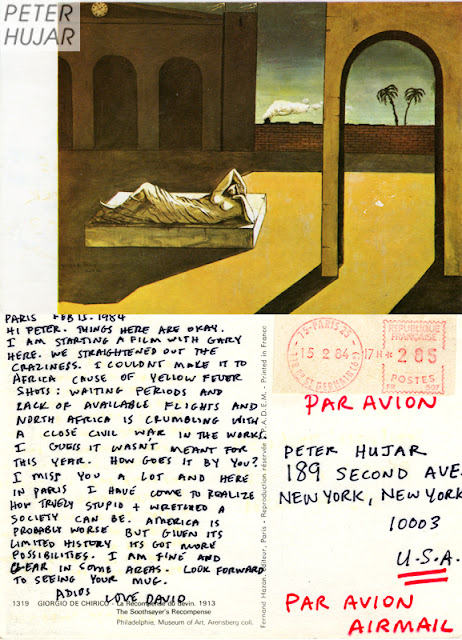 PETER
HUJAR
PARIS FEB 15. 1984
HI PETER. THINGS HERE ARE OKAY.
I AM STARTING A FILM WITH GARY
HERE. WE STRAIGHTENED OUT THE
CRAZINESS. I COULDNT MAKE IT TO
AFRICA CAUSE OF YELLOW FEVER
SHOTS: WAITING PERIODS AND
LACK OF AVAILABLE FLIGHTS AND
NORTH AFRICA IS CRUMBLING WITH
A CLOSE CIVIL WAR IN THE WORKS.
I GUESS IT WASN'T MEANT FOR
THIS YEAR. HOW GOES IT BY YOU?
I MISS YOU A LOT AND HERE
IN PARIS I HAVE COME TO REALIZE
HOW TRUELY STUPID + WRETCHED A
SOCIETY CAN BE. AMERICA IS
PROBABLY WORSE BUT GIVEN ITS
LIMITED HISTORY ITS GOT MORE
POSSIBILITIES. I AM FINE AND
CLEAR IN SOME AREAS. LOOK FORWARD
TO SEEING YOUR MUG.
ADIOS LOVE DAVID
1319 GIORGIO DE CHIRICO - La Récompense du devin. 1913
The Soothsayer's Recompense
Philadelphie, Museum of Art, Arensberg coll.
Fernand Hazan, éditeur, Paris - Reproduction réservée S.P.A.D.E.M. - Printed in France
75-PARIS 25
15 2 84 17H
RÉPUBLIQUE
FRANÇAISE
2 85
POSTES
PAR AVION
PETER HUJAR
189 SECOND AVE.
NEW YORK, NEW YORK
10003
U.S.A.
PAR AVION
AIRMAIL